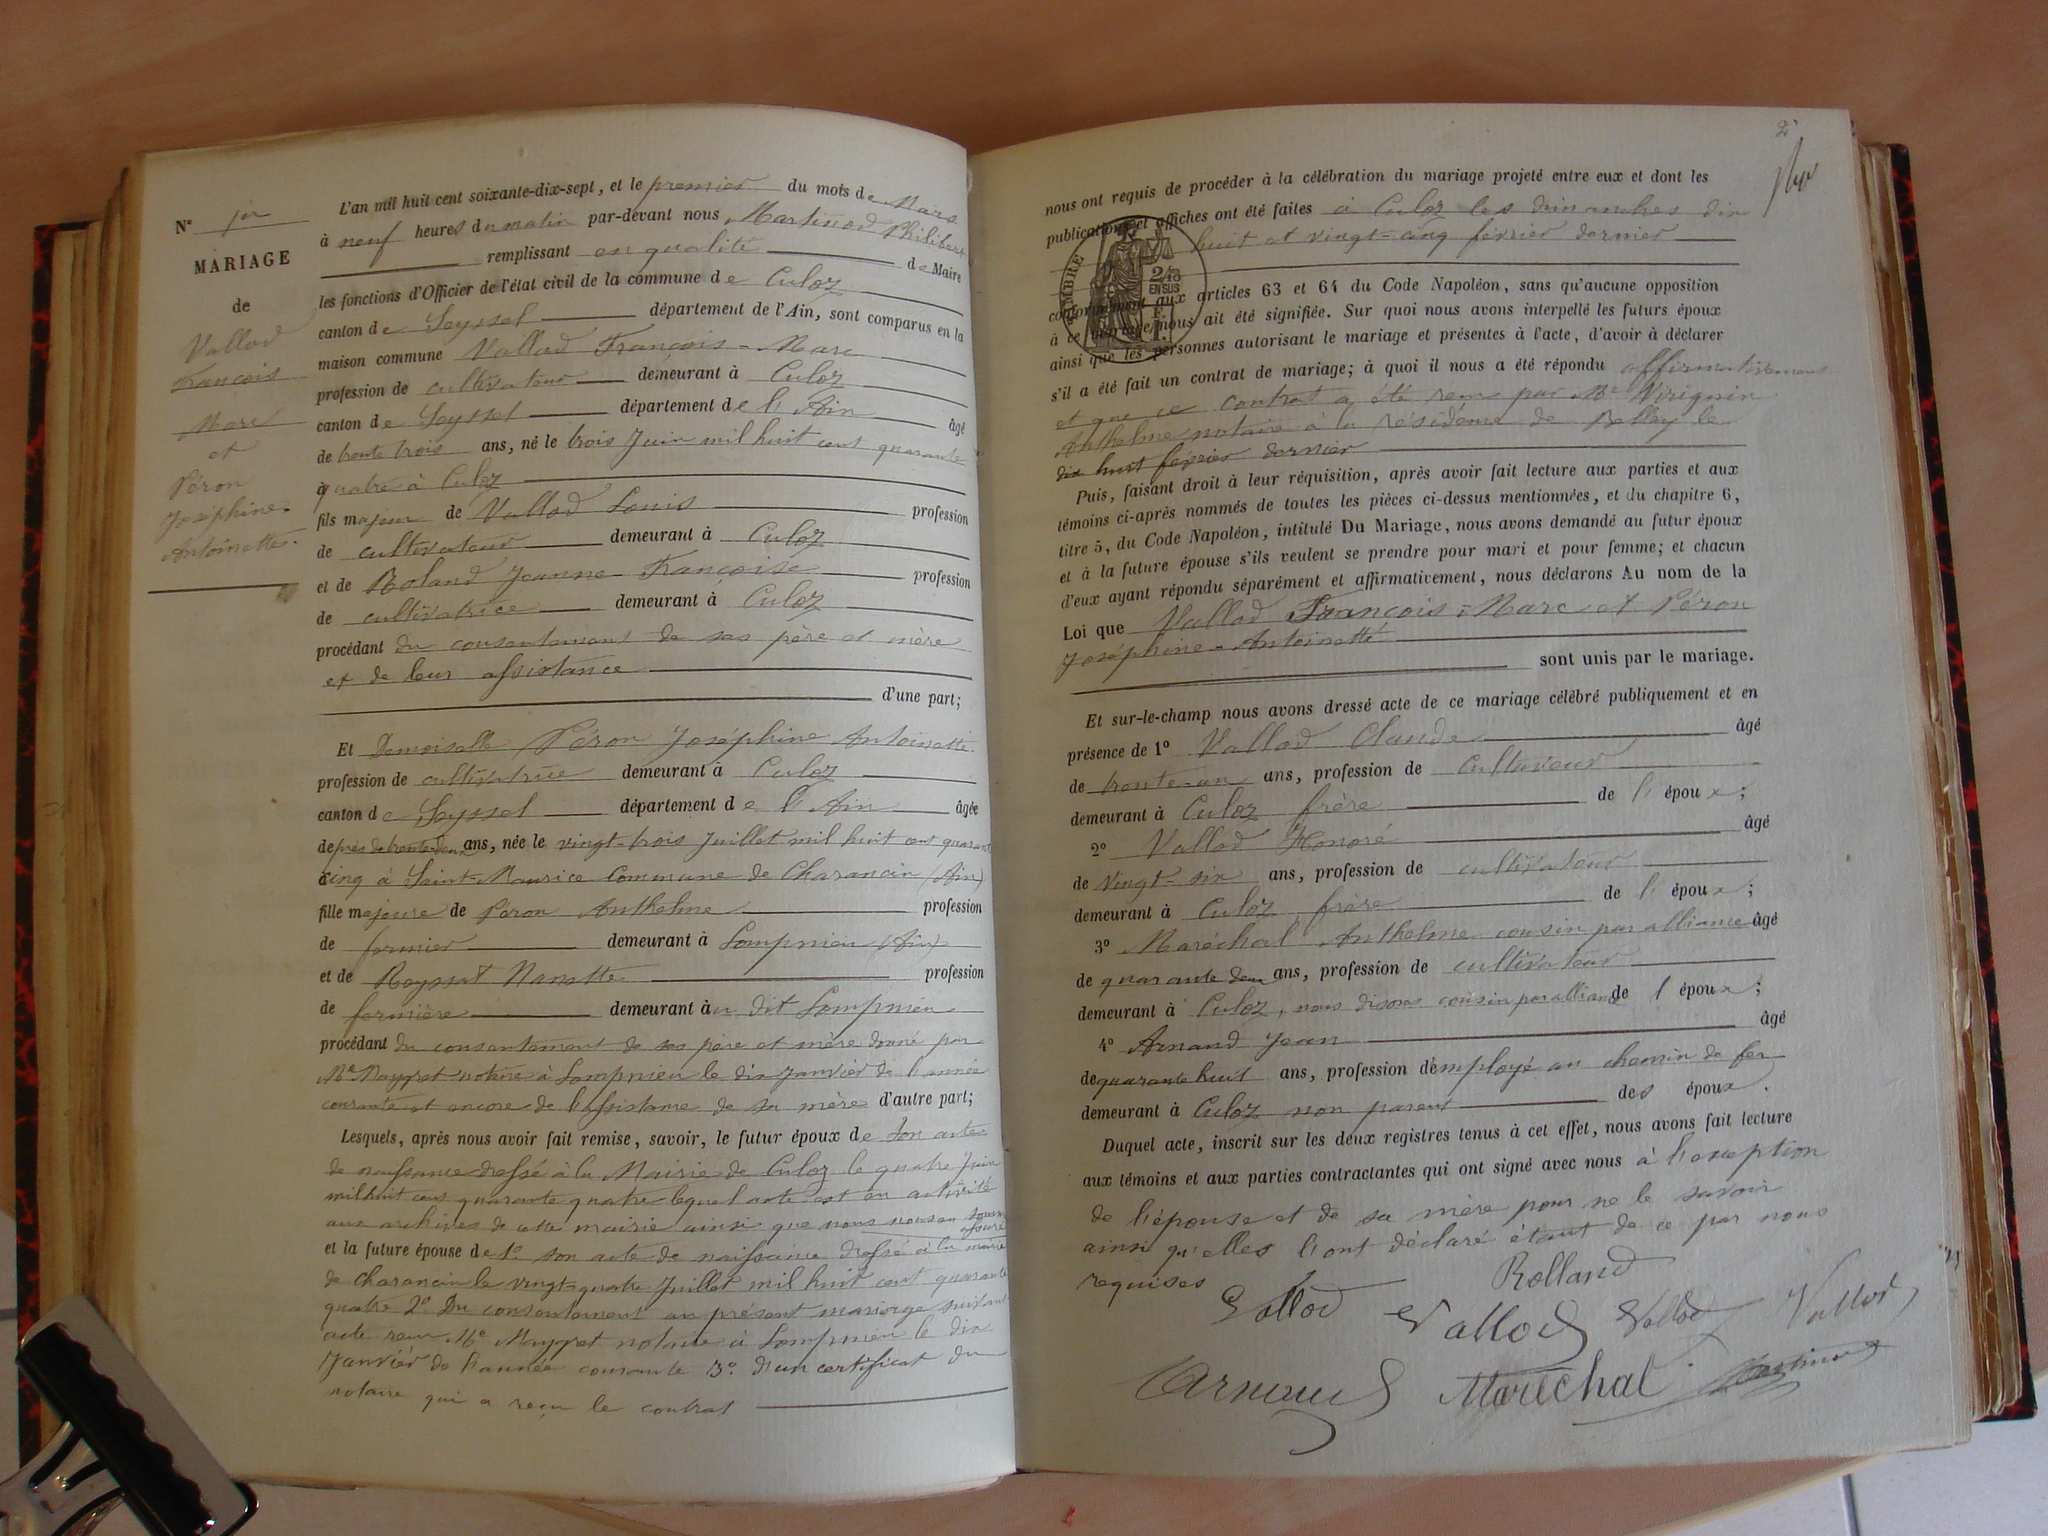 N° 1er
MARIAGE
de
Vallod
François
Marc
et
Péron
Joséphine
Antoinette.
L'an mil huit cent soixante-dix-sept, et le premier du mois de Mars
à neuf heures du matin par-devant nous Martinod Philibert
remplissant en qualité de Maire
les fonctions d'Officier de l'état civil de la commune de Culoz
canton de Seyssel département de l'Ain, sont comparus en la
maison commune Vallod François-Marc
profession de cultivateur demeurant à Culoz
canton de Seyssel département de l'Ain âgé
de trente trois ans, né le trois Juin mil huit cent quarante
quatre à Culoz
fils majeur de Vallod Louis profession
de cultivateur demeurant à Culoz
et de Roland Jeanne Françoise profession
de cultivatrice demeurant à Culoz
procédant du consentement de ses père et mère
et de leur assistance
d'une part;
Et Demoiselle Péron Joséphine Antoinette
profession de cultivatrice demeurant à Culoz
canton de Seyssel département de l'Ain âgée
de près de trente deux ans, née le vingt-trois Juillet mil huit cent quarante
cinq à Saint-Maurice Commune de Charancin (Ain)
fille majeure de Péron Anthelme profession
de fermier demeurant à Lompnieu (Ain)
et de Reyssat Nanette profession
de fermière demeurant au dit Lompnieu
procédant du consentement de ses père et mère donné par
Me Maygret notaire à Lompnieu le dix Janvier de l'année
courante et encore de l'assistance de sa mère d'autre part;
Lesquels, après nous avoir fait remise, savoir, le futur époux de son acte
de naissance dressé à la Mairie de Culoz le quatre Juin
mil huit cent quarante quatre lequel acte est en activité
aux archives de cette mairie ainsi que nous nous en sommes
assuré
et la future épouse de 1° son acte de naissance dressé à la mairie
de Charancin le vingt-quatre Juillet mil huit cent quarante
quatre 2° Du consentement au présent mariage suivant
acte reçu Me Maygret notaire à Lompnieu le dix
Janvier de l'année courante 3° d'un certificat du
notaire qui a reçu le contrat
2
nous ont requis de procéder à la célébration du mariage projeté entre eux et dont les
publications et affiches ont été faites à Culoz les dimanches dix
huit et vingt-cinq février dernier
TIMBRE
2/10
EN SUS
1 F.
conformément aux articles 63 et 64 du Code Napoléon, sans qu'aucune opposition
à ce mariage nous ait été signifiée. Sur quoi nous avons interpellé les futurs époux
ainsi que les personnes autorisant le mariage et présentes à l'acte, d'avoir à déclarer
s'il a été fait un contrat de mariage; à quoi il nous a été répondu affirmativement
et que ce contrat a été reçu par Me Virignin
Anthelme notaire à la résidence de Belley le
dix huit février dernier
Puis, faisant droit à leur réquisition, après avoir fait lecture aux parties et aux
témoins ci-après nommés de toutes les pièces ci-dessus mentionnées, et du chapitre 6,
titre 5, du Code Napoléon, intitulé Du Mariage, nous avons demandé au futur époux
et à la future épouse s'ils veulent se prendre pour mari et pour femme; et chacun
d'eux ayant répondu séparément et affirmativement, nous déclarons Au nom de la
Loi que Vallod François-Marc et Péron
Joséphine-Antoinette
sont unis par le mariage.
Et sur-le-champ nous avons dressé acte de ce mariage célébré publiquement et en
présence de 1° Vallod Claude âgé
de trente-un ans, profession de cultivateur
demeurant à Culoz frère de l'époux;
2° Vallod Honoré âgé
de vingt-six ans, profession de cultivateur
demeurant à Culoz frère de l'époux;
3° Maréchal Anthelme cousin par alliance âgé
de quarante deux ans, profession de cultivateur
demeurant à Culoz, nous disons cousin par alliance de l'époux;
4° Arnaud Jean âgé
de quarante huit ans, profession d'employé au chemin de fer
demeurant à Culoz non parent des époux.
Duquel acte, inscrit sur les deux registres tenus à cet effet, nous avons fait lecture
aux témoins et aux parties contractantes qui ont signé avec nous à l'exception
de l'épouse et de sa mère pour ne le savoir
ainsi qu'elles l'ont déclaré étant de ce par nous
requises
Rolland
Vallod Vallod Vallod Vallod
Arnaud Maréchal Martinod